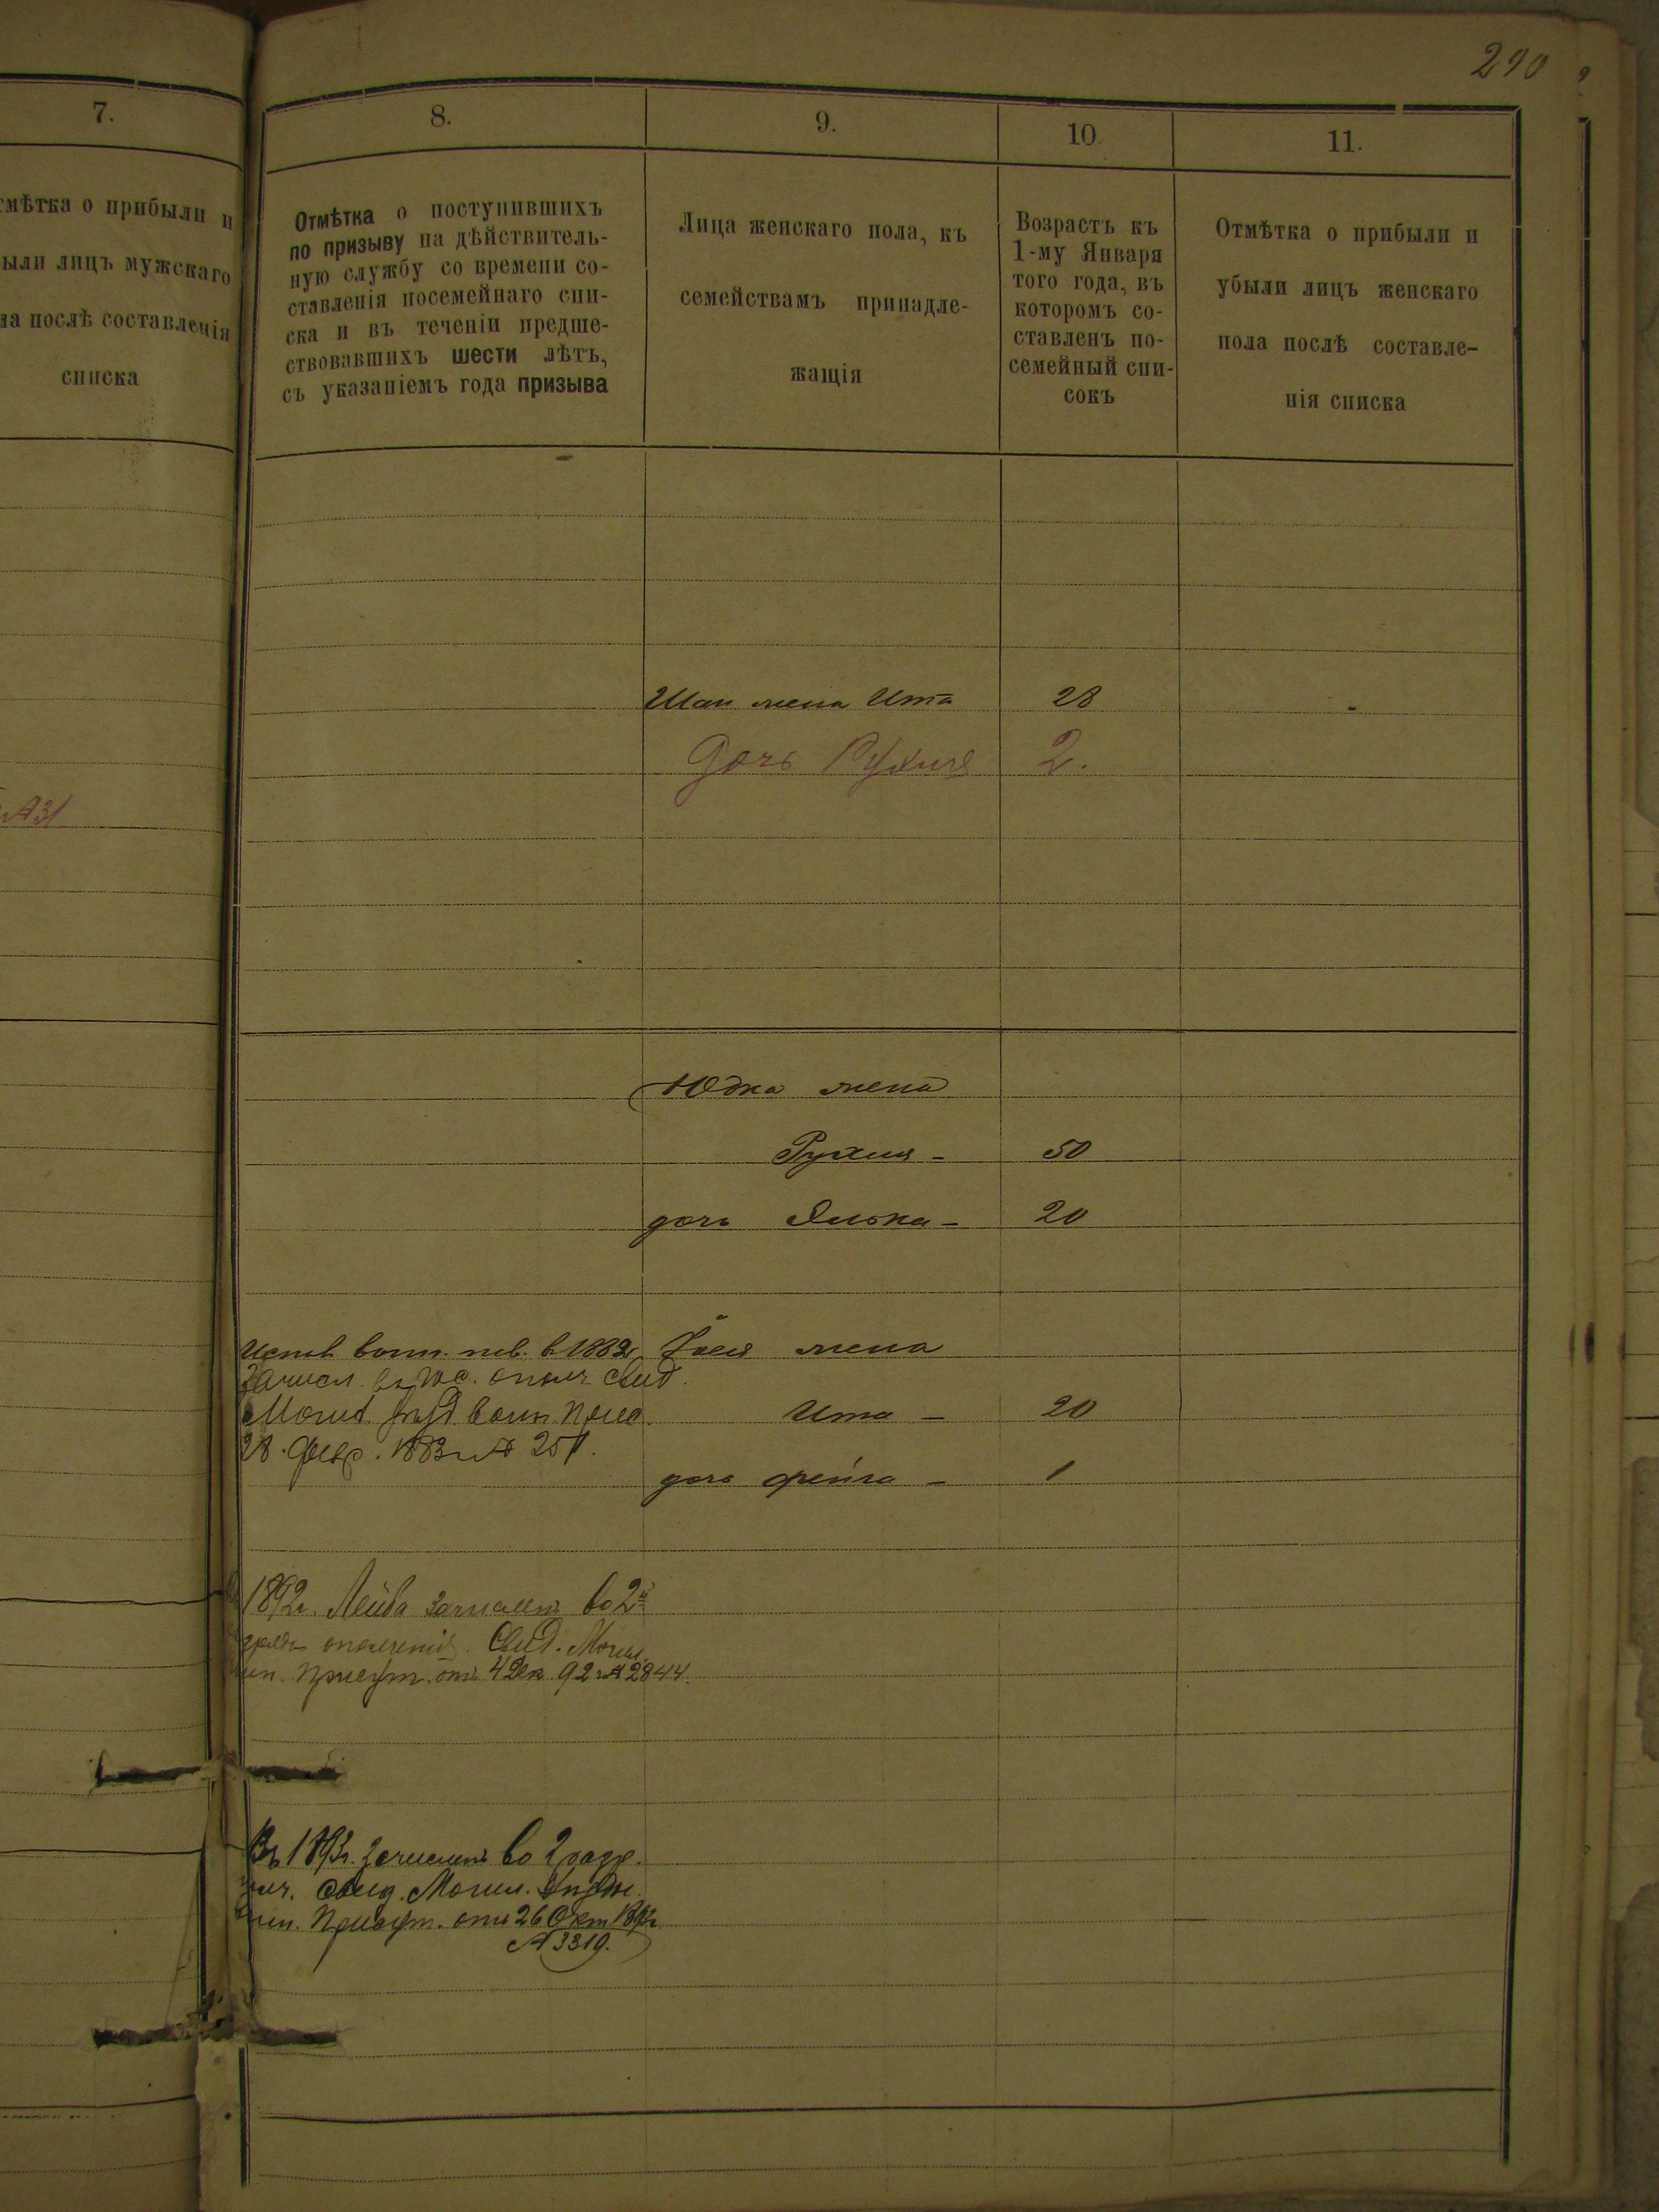 290
7.
тмѣтка о прибыли и
ыли лицъ мужскаго
ла послѣ составленія
списка
А31
8.
Отмѣтка о поступившихъ
по призыву на дѣйствитель-
ную службу со времени со-
ставленія посемейнаго спи-
ска и въ теченіи предше-
ствовавшихъ шести лѣтъ,
съ указаніемъ года призыва
9.
Лица женскаго пола, къ
семействамъ принадле-
жащія
10.
Возрастъ къ
1-му Января
того года, въ
которомъ со-
ставленъ по-
семейный спи-
сокъ
11.
Отмѣтка о прибыли и
убыли лицъ женскаго
пола послѣ составле-
нія списка
жена Ита 28
Дочь Рухля 2.
Юдка жена
Рухля - 50
дочь - 20
воин. в 1882 жена
Зачисл. ополч. Свид.
Могил. воин. Прис.
28 Февр. 1883 № 251.
Ита - 20
дочь Фейга - 1
1892г. Лейба зачислен во 2й
ополченія. Свид. Могил.
Присут. отъ 4 Дек. 92 № 2844.
Въ зачислен во 2 разр.
Свид. Могил.
Присут. отъ 26 Окт
№ 3319.